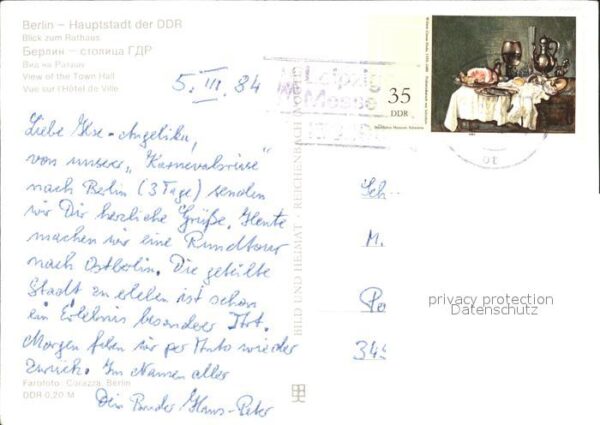 Berlin – Hauptstadt der DDR
Blick zum Rathaus
Берлин – столица ГДР
Вид на Ратуши
View of the Town Hall
Vue sur l'Hôtel de Ville
5. III. 84
Liebe Ilse-Angelika,
von unserer „Karnevalsreise"
nach Berlin (3 Tage) senden
wir Dir herzliche Grüße. Heute
machen wir eine Rundtour
nach Ostberlin. Die geteilte
Stadt zu erleben ist schon
ein Erlebnis besonderer Art.
Morgen fahren wir per Auto wieder
zurück. Im Namen aller
Dein Bruder Hans-Peter
Farbfoto: Corazza, Berlin
DDR 0,20 M
BILD UND HEIMAT · REICHENBACH
Leipzig
Messe
35
DDR
10
Sch
M.
Po
345
privacy protection
Datenschutz